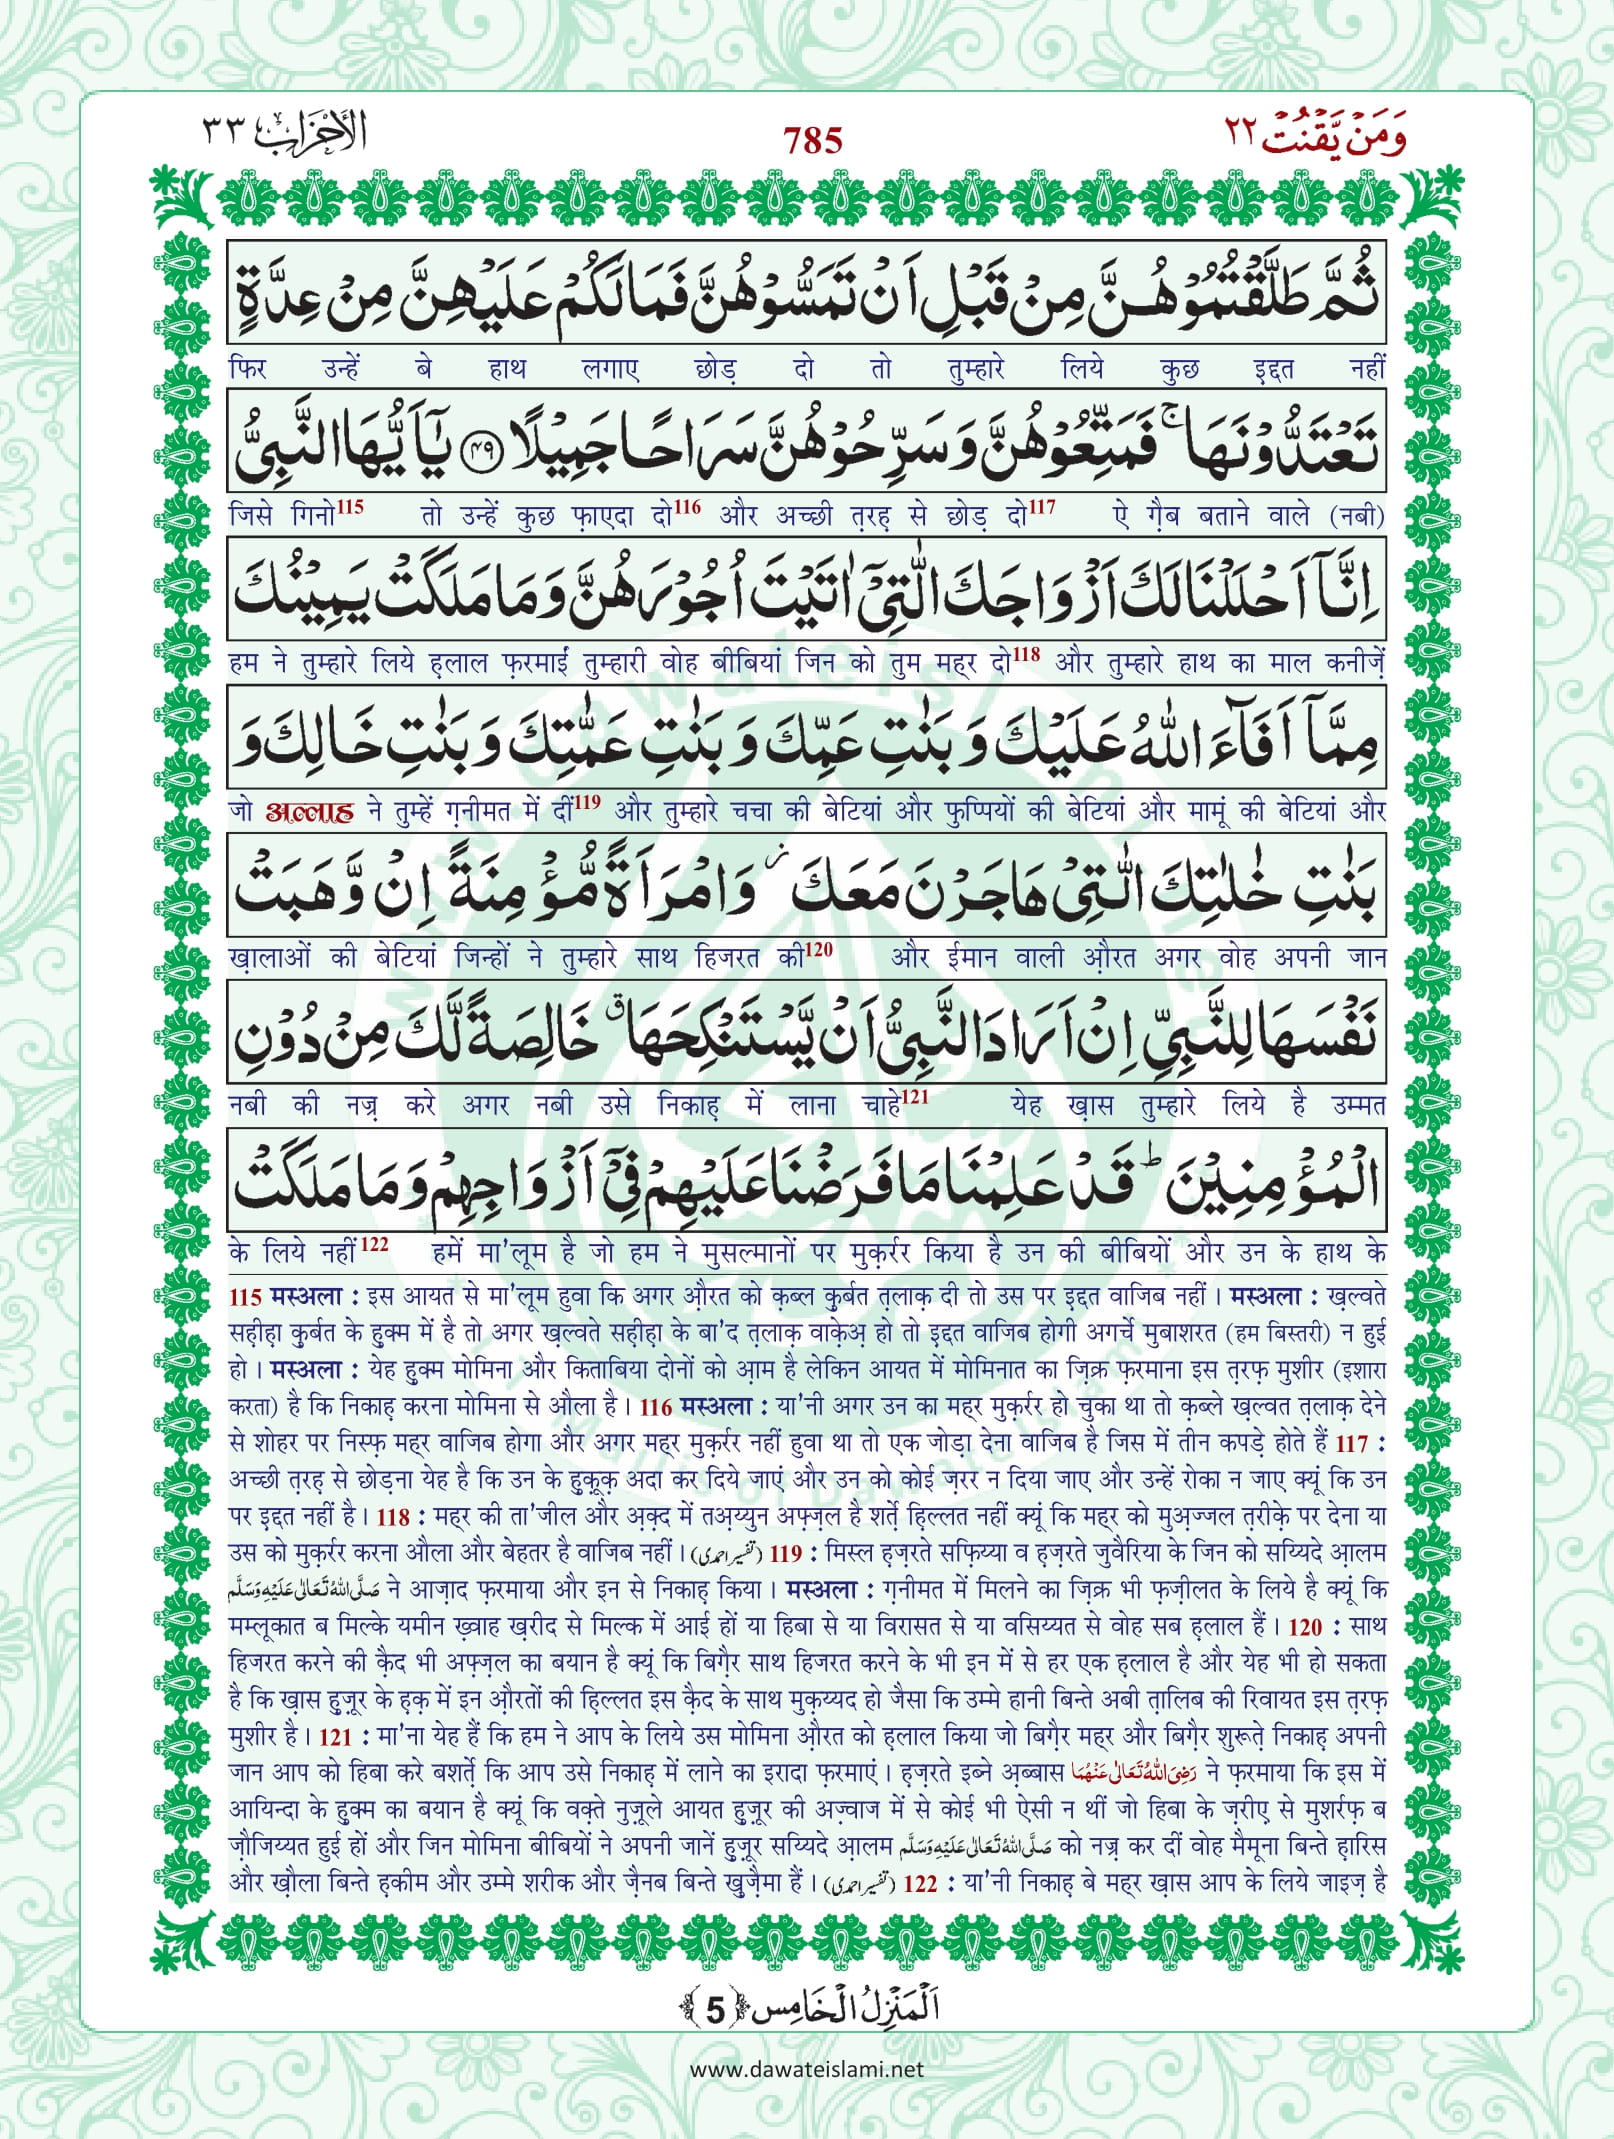 وَمَنْ يَّقْنُتْ ٢٢
785
الْأَحْزَاب ٣٣
ثُمَّ طَلَّقْتُمُوْهُنَّ مِنْ قَبْلِ اَنْ تَمَسُّوْهُنَّ فَمَا لَكُمْ عَلَیْهِنَّ مِنْ عِدَّةٍ
फिर उन्हें बे हाथ लगाए छोड़ दो तो तुम्हारे लिये कुछ इद्दत नहीं
تَعْتَدُّوْنَهَاۚ فَمَتِّعُوْهُنَّ وَ سَرِّحُوْهُنَّ سَرَاحًا جَمِیْلًا ﴿۴۹﴾ یٰۤاَیُّهَا النَّبِیُّ
जिसे गिनो115 तो उन्हें कुछ फ़ाएदा दो116 और अच्छी त़रह़ से छोड़ दो117 ऐ ग़ैब बताने वाले (नबी)
اِنَّاۤ اَحْلَلْنَا لَكَ اَزْوَاجَكَ الّٰتِیْۤ اٰتَیْتَ اُجُوْرَهُنَّ وَ مَا مَلَكَتْ یَمِیْنُكَ
हम ने तुम्हारे लिये ह़लाल फ़रमाईं तुम्हारी वोह बीबियां जिन को तुम महर दो118 और तुम्हारे हाथ का माल कनीज़ें
مِمَّاۤ اَفَآءَ اللّٰهُ عَلَیْكَ وَ بَنٰتِ عَمِّكَ وَ بَنٰتِ عَمّٰتِكَ وَ بَنٰتِ خَالِكَ وَ
जो अल्लाह ने तुम्हें ग़नीमत में दीं119 और तुम्हारे चचा की बेटियां और फुप्पियों की बेटियां और मामूं की बेटियां और
بَنٰتِ خٰلٰتِكَ الّٰتِیْ هَاجَرْنَ مَعَكَ٘ وَ امْرَاَةً مُّؤْمِنَةً اِنْ وَّهَبَتْ
ख़ालाओं की बेटियां जिन्हों ने तुम्हारे साथ हिजरत की120 और ईमान वाली औ़रत अगर वोह अपनी जान
نَفْسَهَا لِلنَّبِیِّ اِنْ اَرَادَ النَّبِیُّ اَنْ یَّسْتَنْكِحَهَاۗ خَالِصَةً لَّكَ مِنْ دُوْنِ
नबी की नज़्र करे अगर नबी उसे निकाह़ में लाना चाहे121 येह ख़ास तुम्हारे लिये है उम्मत
الْمُؤْمِنِیْنَؕ قَدْ عَلِمْنَا مَا فَرَضْنَا عَلَیْهِمْ فِیْۤ اَزْوَاجِهِمْ وَ مَا مَلَكَتْ
के लिये नहीं122 हमें मा'लूम है जो हम ने मुसल्मानों पर मुक़र्रर किया है उन की बीबियों और उन के हाथ के
115 मस्अला : इस आयत से मा'लूम हुवा कि अगर औ़रत को क़ब्ल क़ुर्बत त़लाक़ दी तो उस पर इद्दत वाजिब नहीं। मस्अला : ख़ल्वते
सह़ीह़ा क़ुर्बत के हुक्म में है तो अगर ख़ल्वते सह़ीह़ा के बा'द त़लाक़ वाक़ेअ़ हो तो इद्दत वाजिब होगी अगर्चे मुबाशरत (हम बिस्तरी) न हुई
हो। मस्अला : येह हुक्म मोमिना और किताबिया दोनों को आ़म है लेकिन आयत में मोमिनात का ज़िक्र फ़रमाना इस त़रफ़ मुशीर (इशारा
करता) है कि निकाह करना मोमिना से औला है। 116 मस्अला : या'नी अगर उन का महर मुक़र्रर हो चुका था तो क़ब्ले ख़ल्वत त़लाक़ देने
से शोहर पर निस्फ़ महर वाजिब होगा और अगर महर मुक़र्रर नहीं हुवा था तो एक जोड़ा देना वाजिब है जिस में तीन कपड़े होते हैं 117 :
अच्छी त़रह से छोड़ना येह है कि उन के हुक़ूक़ अदा कर दिये जाएं और उन को कोई ज़रर न दिया जाए और उन्हें रोका न जाए क्यूं कि उन
पर इद्दत नहीं है। 118 : महर की ता'जील और अ़क़्द में तअ़य्युन अफ़्ज़ल है शर्ते़ ह़िल्लत नहीं क्यूं कि महर को मुअज्जल त़रीक़े पर देना या
उस को मुक़र्रर करना औला और बेहतर है वाजिब नहीं। (تفسیر احمدی) 119 : मिस्ल ह़ज़रते सफ़िय्या व ह़ज़रते जुवैरिया के जिन को सय्यिदे आ़लम
صَلَّی اللّٰهُ تَعَالٰی عَلَیْهِ وَسَلَّم ने आज़ाद फ़रमाया और इन से निकाह़ किया। मस्अला : ग़नीमत में मिलने का ज़िक्र भी फ़ज़ीलत के लिये है क्यूं कि
मम्लूकात ब मिल्के यमीन ख़्वाह ख़रीद से मिल्क में आई हों या हिबा से या विरासत से या वसिय्यत से वोह सब ह़लाल हैं। 120 : साथ
हिजरत करने की क़ैद भी अफ़्ज़ल का बयान है क्यूं कि बिग़ैर साथ हिजरत करने के भी इन में से हर एक ह़लाल है और येह भी हो सकता
है कि ख़ास हुज़ूर के ह़क़ में इन औ़रतों की ह़िल्लत इस क़ैद के साथ मुक़य्यद हो जैसा कि उम्मे हानी बिन्ते अबी त़ालिब की रिवायत इस त़रफ़
मुशीर है। 121 : मा'ना येह हैं कि हम ने आप के लिये उस मोमिना औ़रत को ह़लाल किया जो बिग़ैर महर और बिग़ैर शुरूत़े निकाह़ अपनी
जान आप को हिबा करे बशर्ते़ कि आप उसे निकाह़ में लाने का इरादा फ़रमाएं। ह़ज़रते इब्ने अ़ब्बास رَضِیَ اللّٰهُ تَعَالٰی عَنْهُمَا ने फ़रमाया कि इस में
आयिन्दा के हुक्म का बयान है क्यूं कि वक़्ते नुज़ूले आयत हुज़ूर की अज़्वाज में से कोई भी ऐसी न थीं जो हिबा के ज़रीए से मुशर्रफ़ ब
ज़ौजिय्यत हुई हों और जिन मोमिना बीबियों ने अपनी जानें हुज़ूर सय्यिदे आ़लम صَلَّی اللّٰهُ تَعَالٰی عَلَیْهِ وَسَلَّم को नज़्र कर दीं वोह मैमूना बिन्ते ह़ारिस
और ख़ौला बिन्ते ह़कीम और उम्मे शरीक और ज़ैनब बिन्ते ख़ुज़ैमा हैं। (تفسیر احمدی) 122 : या'नी निकाह़ बे महर ख़ास आप के लिये जाइज़ है
اَلْمَنْزِلُ الْخَامِس ﴿5﴾
www.dawateislami.net